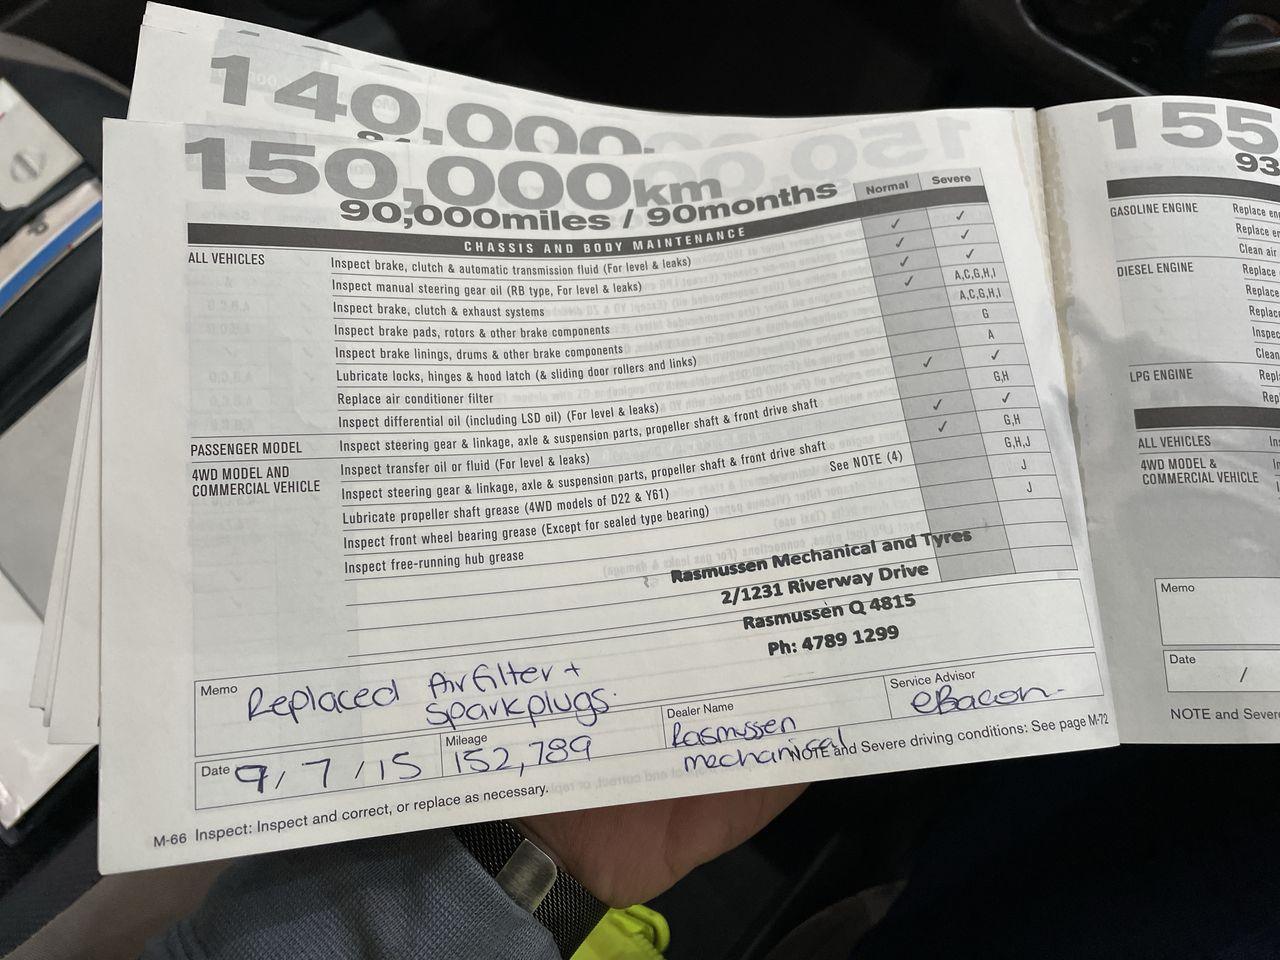 140,000
150,000km
90,000miles / 90months
Normal Severe
CHASSIS AND BODY MAINTENANCE
ALL VEHICLES
Inspect brake, clutch & automatic transmission fluid (For level & leaks) ✓ ✓
Inspect manual steering gear oil (RB type, For level & leaks) ✓ ✓
Inspect brake, clutch & exhaust systems ✓ ✓
Inspect brake pads, rotors & other brake components ✓ A,C,G,H,I
Inspect brake linings, drums & other brake components A,C,G,H,I
Lubricate locks, hinges & hood latch (& sliding door rollers and links) G
Replace air conditioner filter A
Inspect differential oil (including LSD oil) (For level & leaks) ✓ ✓
PASSENGER MODEL
Inspect steering gear & linkage, axle & suspension parts, propeller shaft & front drive shaft G,H
4WD MODEL AND
COMMERCIAL VEHICLE
Inspect transfer oil or fluid (For level & leaks) ✓ ✓
Inspect steering gear & linkage, axle & suspension parts, propeller shaft & front drive shaft ✓ G,H
Lubricate propeller shaft grease (4WD models of D22 & Y61) See NOTE (4) G,H,J
Inspect front wheel bearing grease (Except for sealed type bearing) J
Inspect free-running hub grease J
Rasmussen Mechanical and Tyres
2/1231 Riverway Drive
Rasmussen Q 4815
Ph: 4789 1299
Memo
Replaced Airfilter +
sparkplugs.
Date 9/7/15
Mileage
152,789
Dealer Name
Rasmussen
mechanical
Service Advisor
eBacon
NOTE and Severe driving conditions: See page M-72
M-66 Inspect: Inspect and correct, or replace as necessary.
155
93
GASOLINE ENGINE
Replace
Replace
Clean air
DIESEL ENGINE
Replace
Replace
Replace
Inspect
Clean
LPG ENGINE
ALL VEHICLES
4WD MODEL &
COMMERCIAL VEHICLE
Memo
Date /
NOTE and Severe